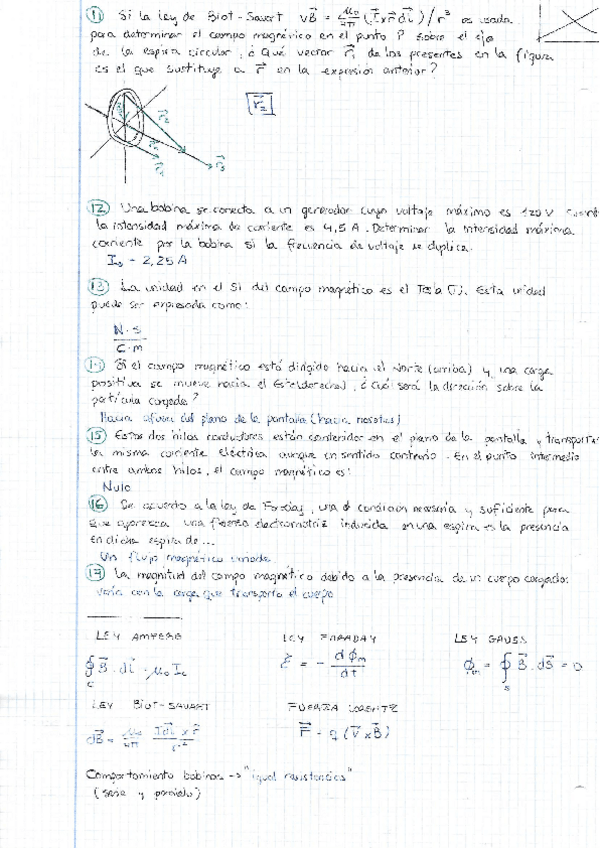 11) Si la Ley de Biot-Savart vB = μ₀/4π (I x r dl) / r³ es usada
para determinar el campo magnético en el punto P sobre el eje
de la espira circular, ¿Qué vector r, de los presentes en la figura
es el que sustituye a r en la expresión anterior?
r₂
12) Una bobina se conecta a un generador cuyo voltaje máximo es 120 V
la intensidad máxima de corriente es 4,5 A. Determinar la intensidad máxima
corriente por la bobina si la frecuencia de voltaje se duplica.
I₀ = 2,25 A
13) La unidad en el SI del campo magnético es el Tesla (T). Esta unidad
puede ser expresada como:
N·s
C·m
14) Si el campo magnético está dirigido hacia el Norte (arriba) y una carga
positiva se mueve hacia el Este (derecha), ¿Cuál será la dirección sobre la
partícula cargada?
Hacia afuera del plano de la pantalla (hacia nosotros)
15) Estos dos hilos conductores están contenidos en el plano de la pantalla y
la misma corriente eléctrica aunque en sentido contrario. En el punto intermedio
entre ambos hilos, el campo magnético es:
Nulo
16) De acuerdo a la ley de Faraday, una condición necesaria y suficiente para
que aparezca una fuerza electromotriz inducida en una espira es la presencia
en dicha espira de...
Un flujo magnético variable
17) La magnitud del campo magnético debido a la presencia de un cuerpo cargado:
varía con la carga que transporta el cuerpo
LEY AMPERE LEY FARADAY LEY GAUSS
∮c B · dl = μ₀ Ic ε = - dϕm/dt ϕm = ∮s B · dS = 0
LEY BIOT-SAVART FUERZA LORENTZ
dB = μ₀/4π Idl x r/r² F = q (V x B)
Comportamiento bobinas → "igual resistencias"
(serie y paralelo)